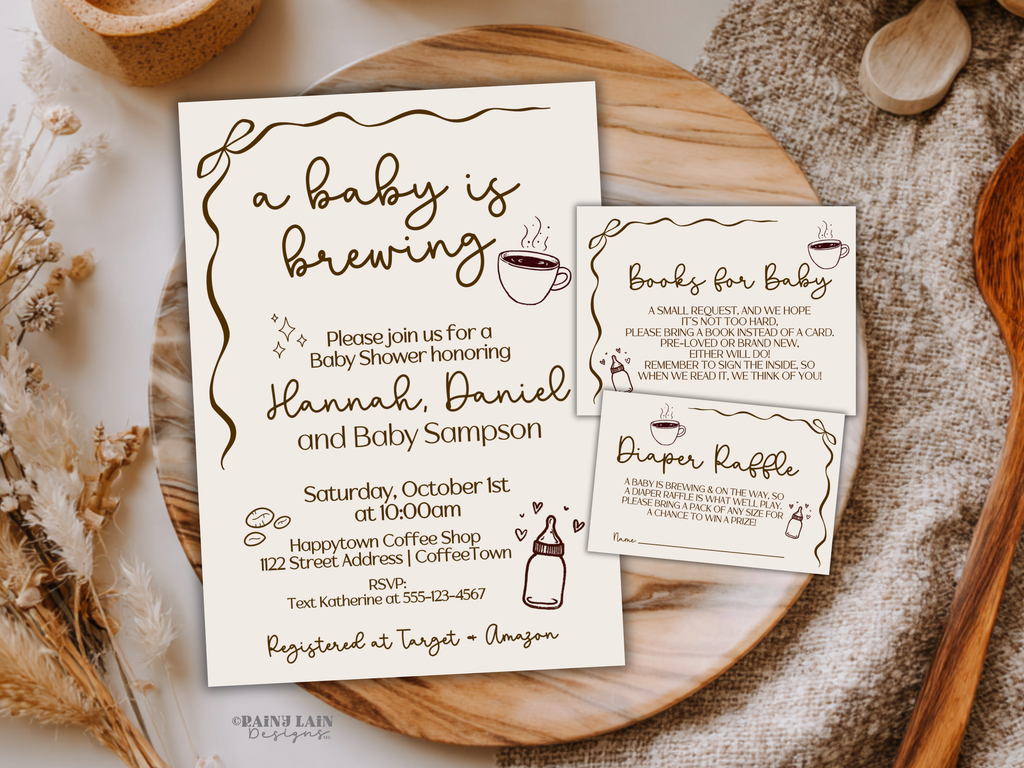 a baby is
brewing
Please join us for a
Baby Shower honoring
Hannah, Daniel
and Baby Sampson
Saturday, October 1st
at 10:00am
Happytown Coffee Shop
1122 Street Address | CoffeeTown
RSVP:
Text Katherine at 555-123-4567
Registered at Target + Amazon
Books for Baby
A SMALL REQUEST, AND WE HOPE
IT'S NOT TOO HARD,
PLEASE BRING A BOOK INSTEAD OF A CARD.
PRE-LOVED OR BRAND NEW,
EITHER WILL DO!
REMEMBER TO SIGN THE INSIDE, SO
WHEN WE READ IT, WE THINK OF YOU!
Diaper Raffle
A BABY IS BREWING & ON THE WAY, SO
A DIAPER RAFFLE IS WHAT WE'LL PLAY.
PLEASE BRING A PACK OF ANY SIZE FOR
A CHANCE TO WIN A PRIZE!
Name
©PAINJ LAIN
Designs